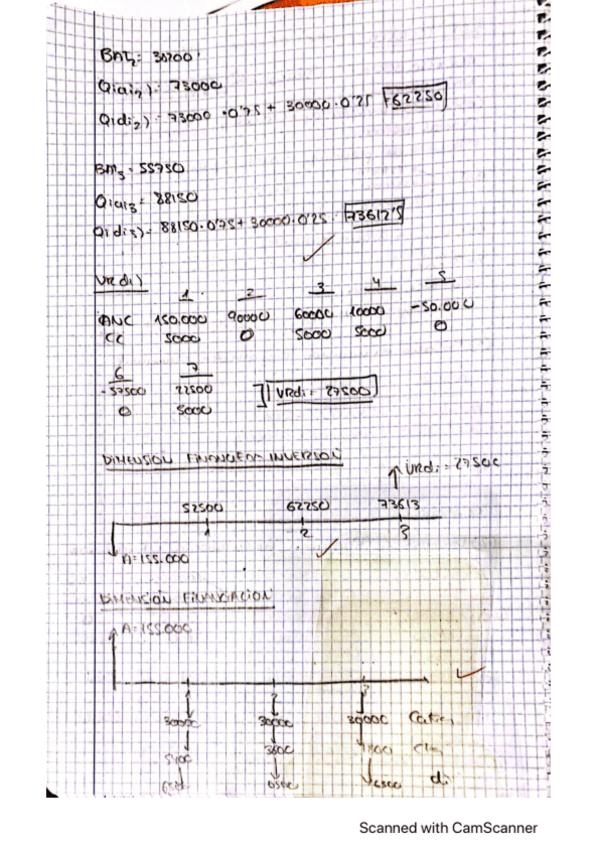 BAI2: 30700
Q(ai2): 73000
Q(di2): 73000 · 0'75 + 30000 · 0'25 62250
BAI3 = 55750
Q(ai3 = 88150
Q(di3): 88150 · 0'75 + 30000 · 0'25 73612'5
VR di)
1 2 3 4 5
ANC 150.000 90000 60000 10000 -50.000
CC 5000 0 5000 5000 0
6 7
-57500 22500
0 5000
VRdi = 27500
DIMENSION FINANCIERA INVERSION
VRdi = 27500
52500 62250 73613
1 2 3
A = 155.000
DIMENSIÓN FINANCIACION
A = 155.000
1 2 3
30000 30000 30000
5400 3600 1800
6500 6500 di
Scanned with CamScanner